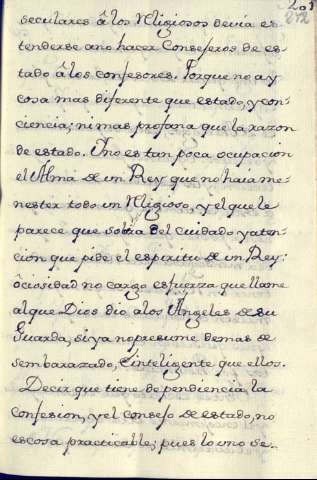 201
272
seculares â los Religiosos devia es-
tenderse ano hacer Consejeros de es-
tado âlos confesores. Porque no ay
cosa mas diferente que estado, y con-
ciencia; ni mas profana que la razon
de estado. Uno es tan poca ocupacion
el Alma de un Rey que no haia me-
nester todo un Religioso, y el que le
parece que sobra del cuidado y aten-
cion que pide el espiritu de un Rey:
ôciosidad no cargo es fuerza que llame
al que Dios dio a los Angeles de su
Guarda, si ya no presume de mas de
sembarazado, è inteligente que ellos.
Decir que tiene dependiencia la
confesion, y el consejo de estado, no
es cosa practicable; pues lo uno se-